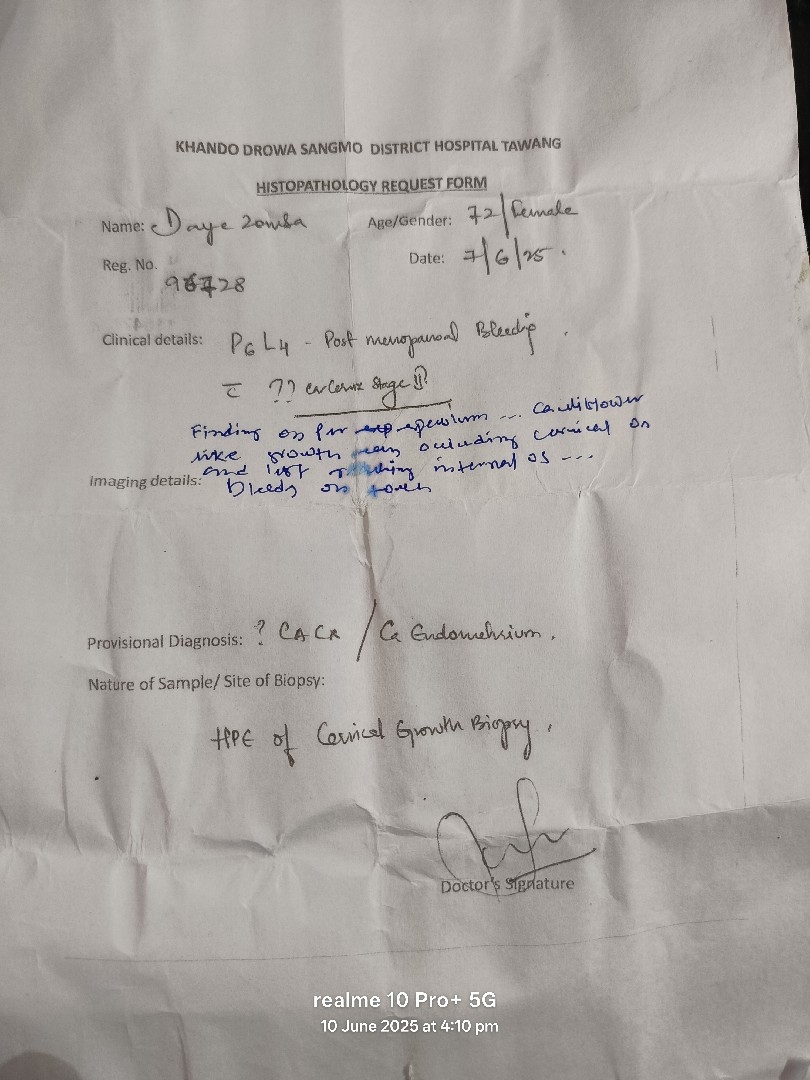 KHANDO DROWA SANGMO DISTRICT HOSPITAL TAWANG
HISTOPATHOLOGY REQUEST FORM
Name: Daye Zomba Age/Gender: 72/Female
Reg. No. Date: 7/6/25.
28
Clinical details: P6 L4 - Post menopausal Bleeding.
?? Stage II?
Finding on speculum ... Cauliflower
like growth occluding cervical os
and internal os ...
Imaging details: bleeds on touch
Provisional Diagnosis: ? CA CX / Ca Endometrium.
Nature of Sample/ Site of Biopsy:
HPE of Cervical Growth Biopsy.
Doctor's Signature
realme 10 Pro+ 5G
10 June 2025 at 4:10 pm